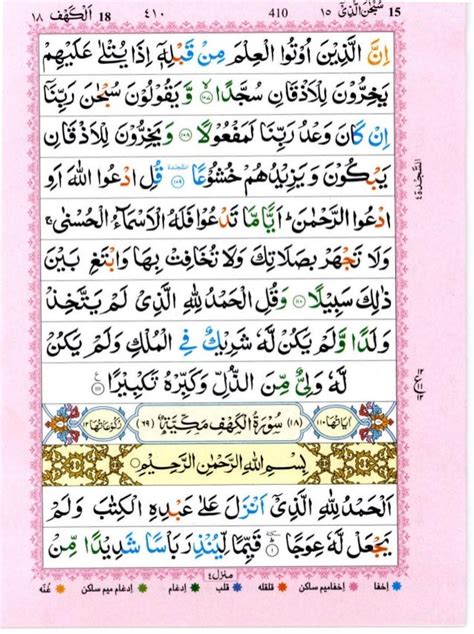 اَلْكَهْف ١٨ 18 ٤١٠ 410 سُبْحٰنَ الَّذِىْٓ ١٥ 15
اِنَّ الَّذِيْنَ اُوْتُوا الْعِلْمَ مِنْ قَبْلِهٖٓ اِذَا يُتْلٰى عَلَيْهِمْ
يَخِرُّوْنَ لِلْاَذْقَانِ سُجَّدًا ۙ ١٠٧ وَّيَقُوْلُوْنَ سُبْحٰنَ رَبِّنَآ
اِنْ كَانَ وَعْدُ رَبِّنَا لَمَفْعُوْلًا ١٠٨ وَيَخِرُّوْنَ لِلْاَذْقَانِ
يَبْكُوْنَ وَيَزِيْدُهُمْ خُشُوْعًا ١٠٩ السجدة قُلِ ادْعُوا اللّٰهَ اَوِ
ادْعُوا الرَّحْمٰنَ ؕ اَيًّا مَّا تَدْعُوْا فَلَهُ الْاَسْمَآءُ الْحُسْنٰى ۚ
وَلَا تَجْهَرْ بِصَلَاتِكَ وَلَا تُخَافِتْ بِهَا وَابْتَغِ بَيْنَ
ذٰلِكَ سَبِيْلًا ١١٠ وَقُلِ الْحَمْدُ لِلّٰهِ الَّذِىْ لَمْ يَتَّخِذْ
وَلَدًا وَّلَمْ يَكُنْ لَّهٗ شَرِيْكٌ فِى الْمُلْكِ وَلَمْ يَكُنْ
لَّهٗ وَلِىٌّ مِّنَ الذُّلِّ وَكَبِّرْهُ تَكْبِيْرًا ١١١
السجدة ٤
اٰيَاتُهَا ١١٠ (١٨) سُوْرَةُ الْكَهْفِ مَكِّيَّةٌ (٦٩) رُكُوْعَاتُهَا ١٢
بِسْمِ اللّٰهِ الرَّحْمٰنِ الرَّحِيْمِ
اَلْحَمْدُ لِلّٰهِ الَّذِىْٓ اَنْزَلَ عَلٰى عَبْدِهِ الْكِتٰبَ وَلَمْ
يَجْعَلْ لَّهٗ عِوَجًا ١ قَيِّمًا لِّيُنْذِرَ بَاْسًا شَدِيْدًا مِّنْ
منزل ٤
اخفا اخفا میم ساکن قلقله قلب ادغام ادغام میم ساکن غنّه